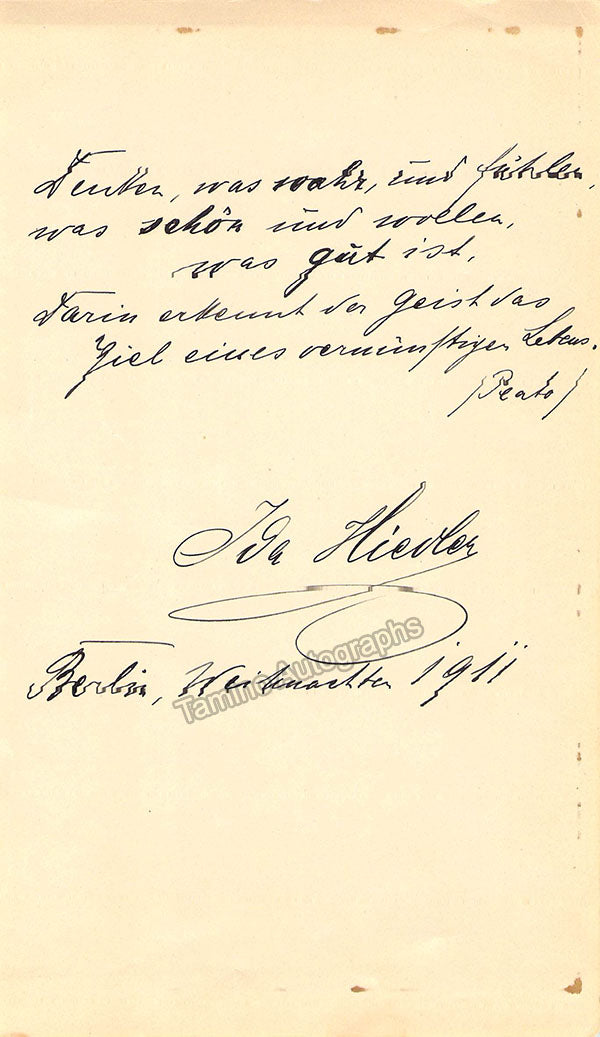 Denken, was wahr, und fühlen,
was schön und wollen,
was gut ist,
Darin erkennt der Geist das
Ziel eines vernünftigen Lebens.
(Plato)
Ida Hiedler
Berlin, Weihnachten 1911
Tamino Autographs